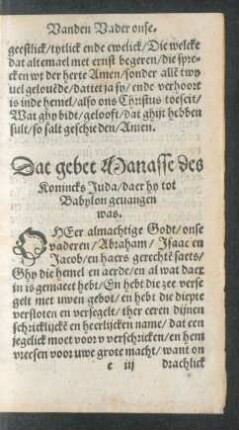 Vanden Vader onse.
geestlick/tytlick ende ewelick/Die welcke
dat altemael met ernst begeren/die spre-
cken wt der herte Amen/sonder allē twy
uel gelouēde/dattet ja sy/ende verhoort
is inde hemel/also ons Christus toeseit/
Wat ghy bidt/gelooft/dat ghijt hebben
sult/so salt geschieden/Amen.
Dat gebet Manasse des
Konincks Juda/daer hy tot
Babylon geuangen
was.
OHEer almachtige Godt/onse
vaderen/Abraham/Isaac en
Jacob/en haers gerechtē saets/
Ghy die hemel en aerde/en al wat daer
in is gemaect hebt/En hebt die zee verse
gelt met uwen gebot/en hebt die diepte
verstoten en versegelt/ther eeren dijnen
schricklijckē en heerlijcken name/dat een
jegelick moet voor v verschricken/en hem
vreesen voor uwe grote macht/want on
e iij drachlick